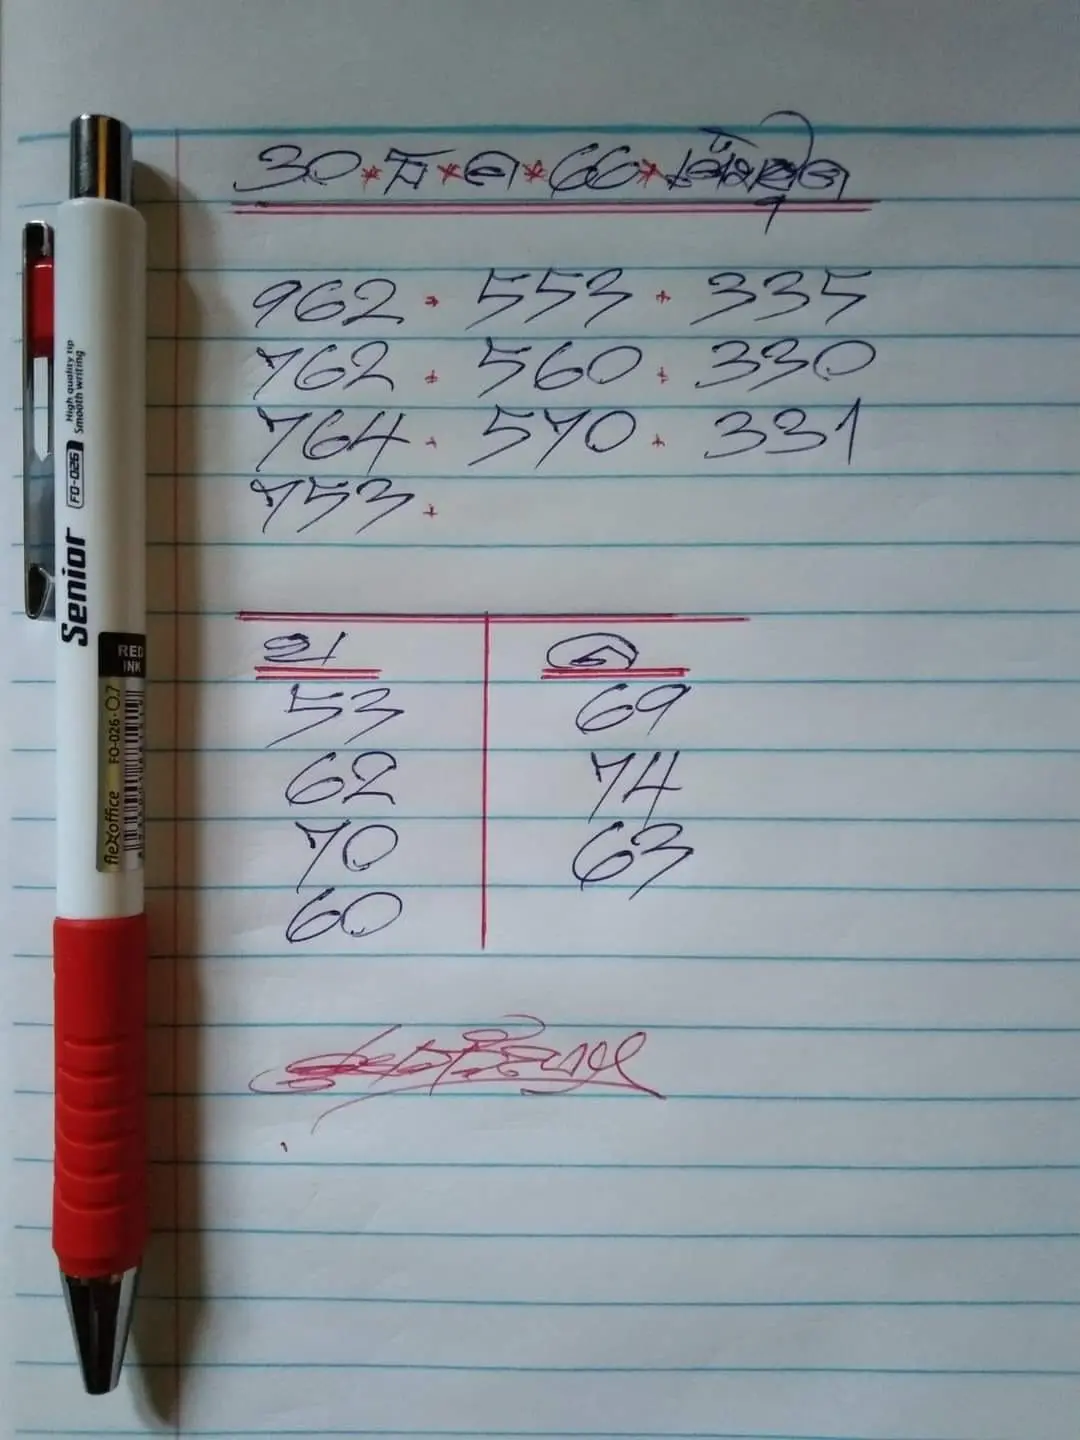 30*ธ*ค*66*
962 . 553 . 335
762 . 560 . 330
764 . 570 . 331
753 .
บ ล
53 69
62 74
70 63
60
Senior
FO-026
High quality tip
Smooth writing
RED INK
flexoffice FO-026 · 0.7